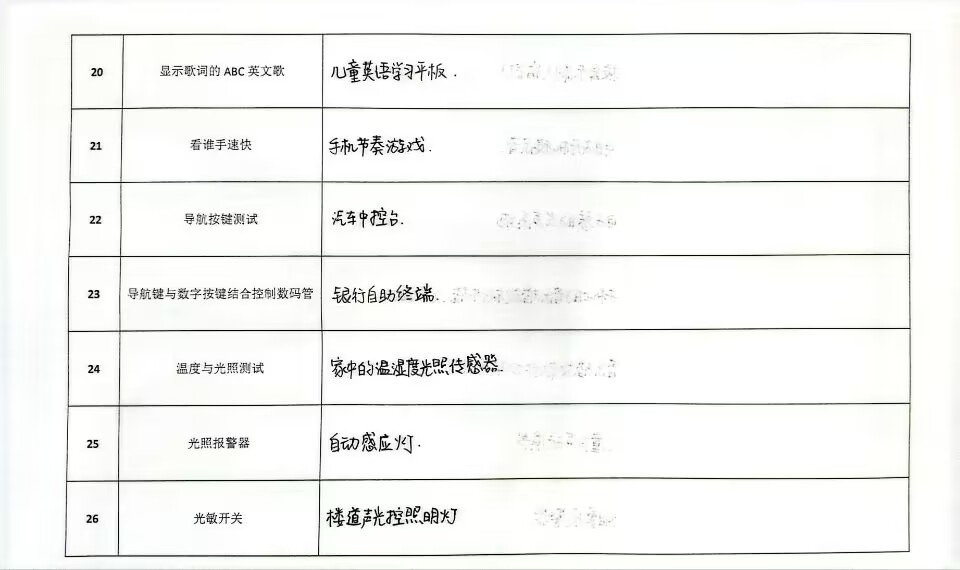 20 显示歌词的 ABC 英文歌 儿童英语学习平板.
21 看谁手速快 手机节奏游戏.
22 导航按键测试 汽车中控台.
23 导航键与数字按键结合控制数码管 银行自助终端.
24 温度与光照测试 家中的温湿度光照传感器.
25 光照报警器 自动感应灯.
26 光敏开关 楼道声光控照明灯